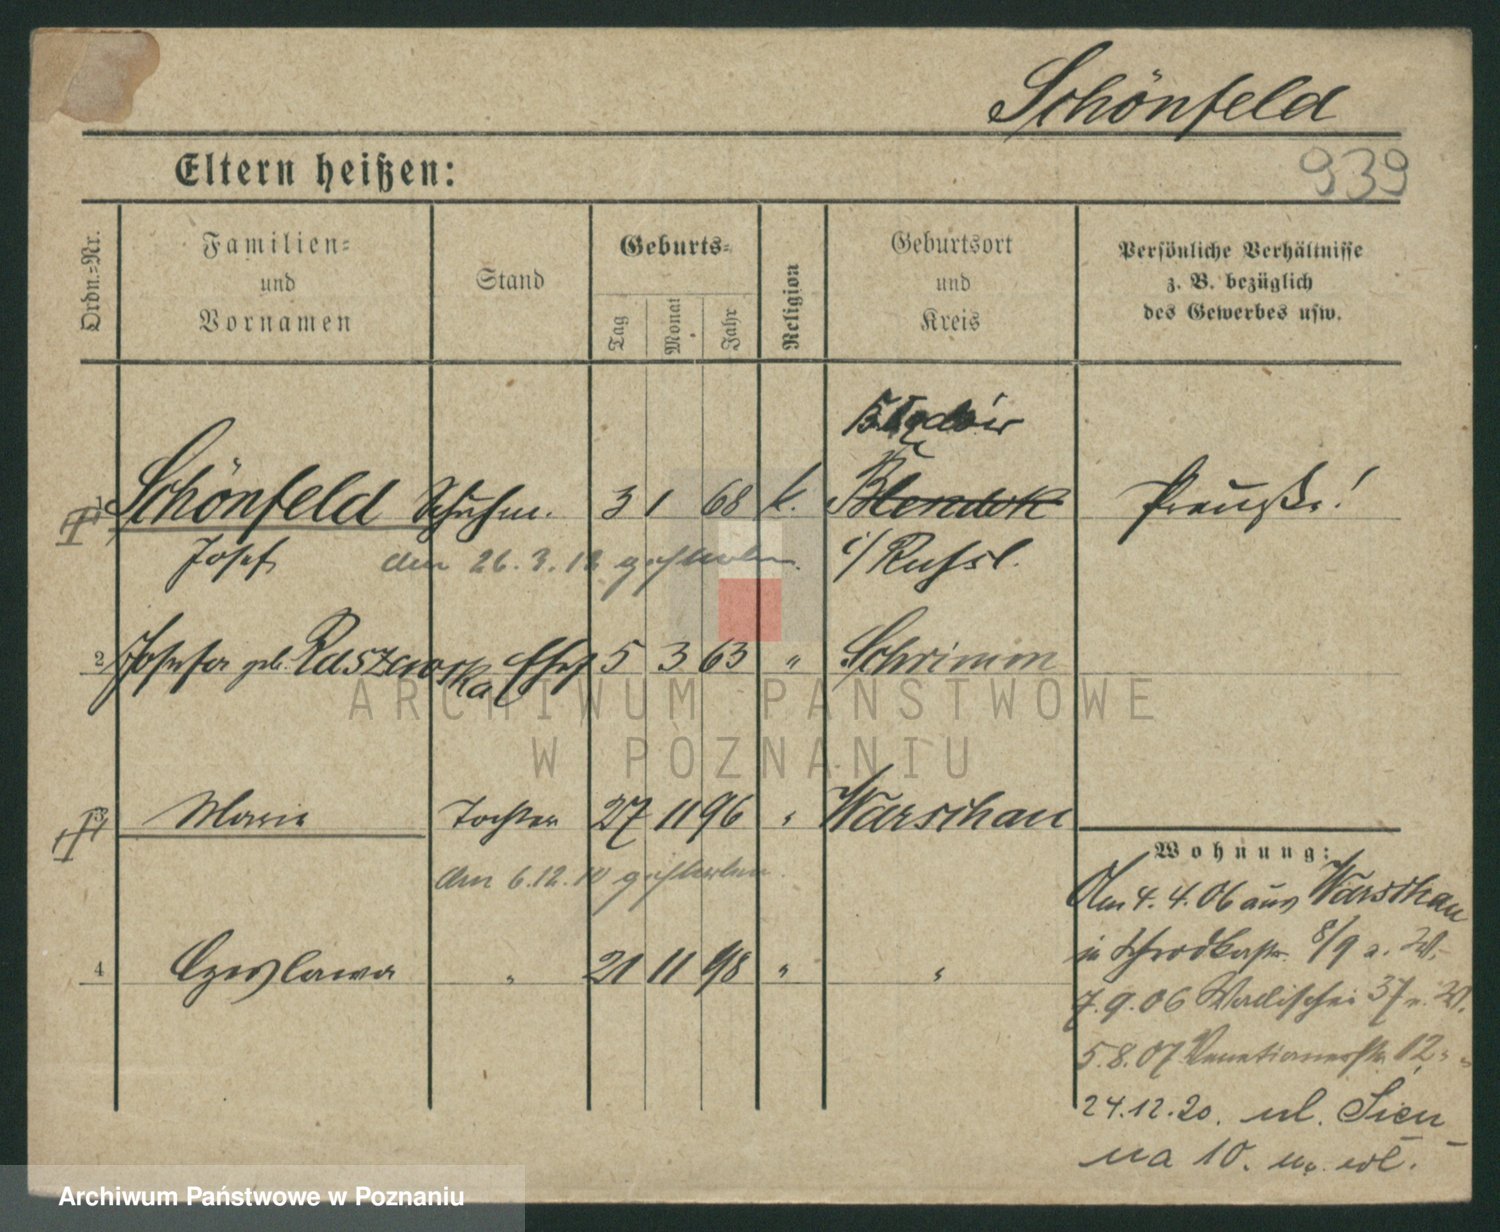 Schönfeld
939
Eltern heißen:
Ordn.=Nr.
Familien=
und
Vornamen
Stand
Geburts=
Tag
Monat
Jahr
Religion
Geburtsort
und
Kreis
Persönliche Verhältnisse
z. B. bezüglich
des Gewerbes usw.
1 Schönfeld Schuhm. 3 1 68 k. Blendok Preuße!
Josef den 26.3.18 gestorben. i/Russl.
2 Josefa geb. Raszewska Ehefr 5 3 63 " Schrimm
3 Marie Tochter 27 11 96 " Warschau
den 6.12.10 gestorben.
4 Czeslawa " 21 11 98 " "
Wohnung:
Am 4.4.06 aus Warschau
in Schrodkastr. 8/9 a. W.
7.9.06 Wallischei 37 W.
5.8.07 Venetianerstr. 12 "
24.12.20. ul. Sien
na 10.
ARCHIWUM PAŃSTWOWE
W POZNANIU
Archiwum Państwowe w Poznaniu